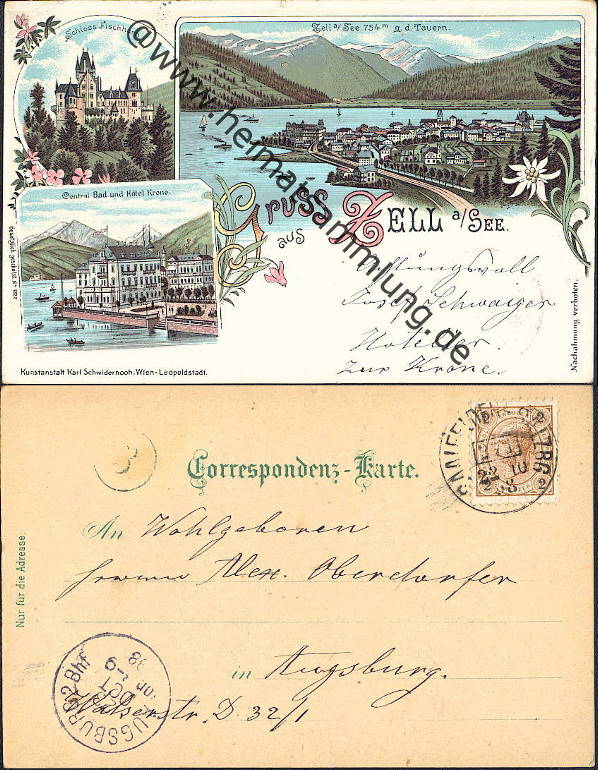 Schloss Fischhorn
Zell a/See 754 m g. d. Tauern.
Central Bad und Hôtel Krone.
GRUSS
aus
ZELL a/SEE.
Achtungsvoll
Josef Schwaiger
Hotelier
Zur Krone.
Nachahmung verboten.
Kunstanstalt Karl Schwidernoch, Wien-Leopoldstadt.
@www.heimatsammlung.de
Correspondenz-Karte.
SAALFELDEN SALZBG
22 10
98
2
Nur für die Adresse.
An Wohlgeboren
Herrn Alex. Oberdorfer
in Augsburg.
Walserstr. D 32/1
AUGSBURG 2 Bhf
OCT
98